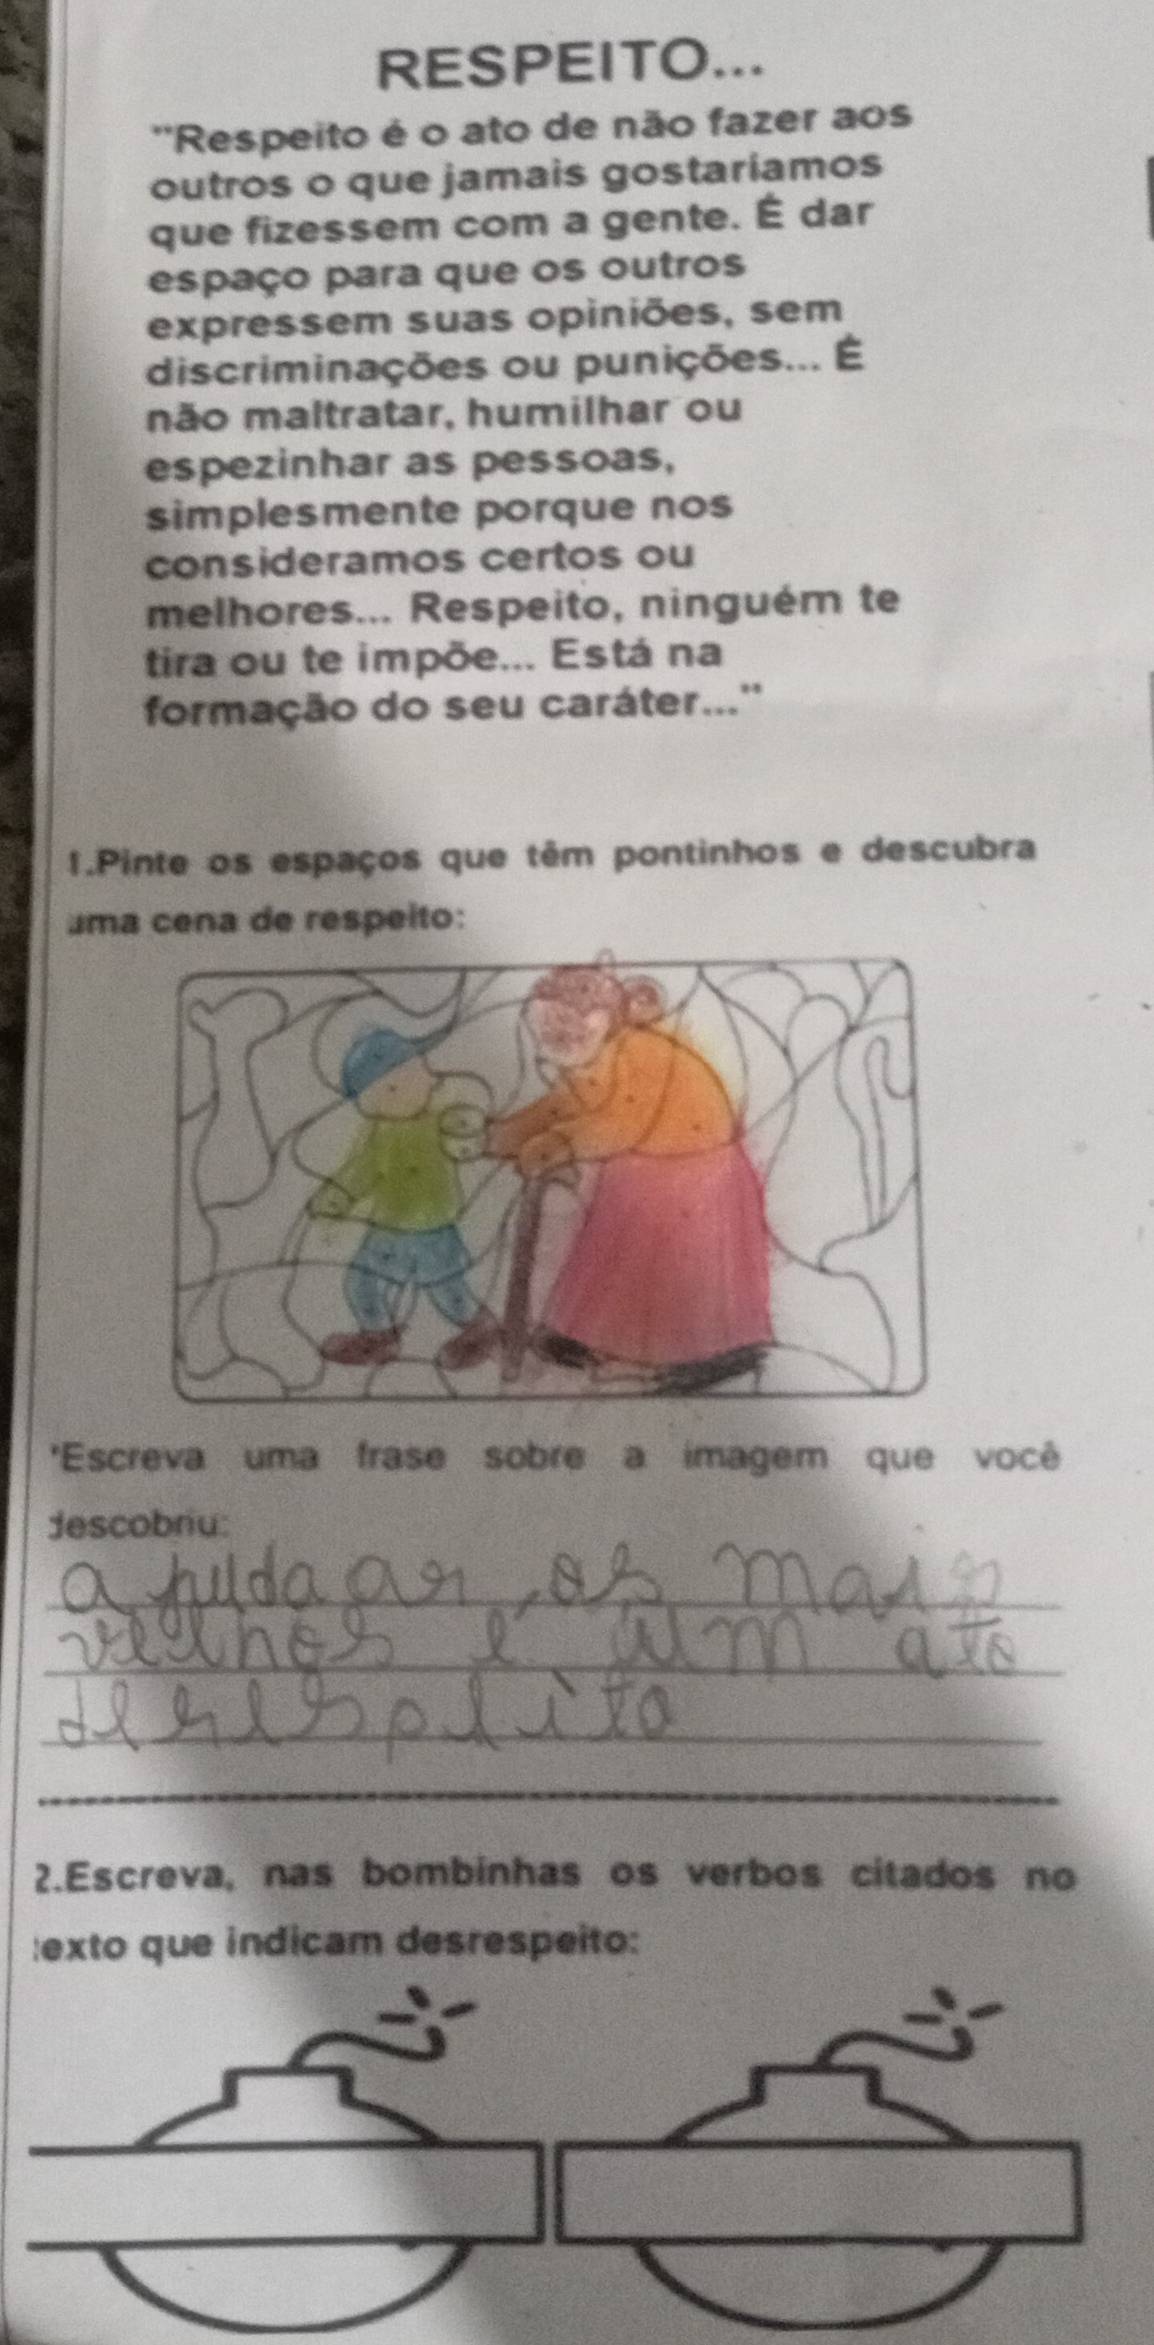 RESPEITO...
"Respeito é o ato de não fazer aos
outros o que jamais gostariamos
que fizessem com a gente. É dar
espaço para que os outros
expressem suas opiniões, sem
discriminações ou punições... É
não maltratar, humilhar ou
espezinhar as pessoas,
simplesmente porque nos
consideramos certos ou
melhores... Respeito, ninguém te
tira ou te impõe... Está na
formação do seu caráter..."
1.Pinte os espaços que têm pontinhos e descubra
uma cena de respeito:
*Escreva uma frase sobre a imagem que você
descobriu:
a juldaar, os mais
velhos e um ato
de respeito
2.Escreva, nas bombinhas os verbos citados no
texto que indicam desrespeito: